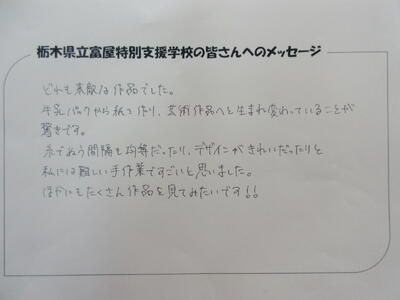 栃木県立富屋特別支援学校の皆さんへのメッセージ
どれも素敵な作品でした。
牛乳パックから紙を作り、芸術作品へと生まれ変わっていることが
驚きです。
糸でぬう間隔も均等だったり、デザインがきれいだったりと
私には難しい手作業ですごいと思いました。
ほかにもたくさん作品を見てみたいです!!